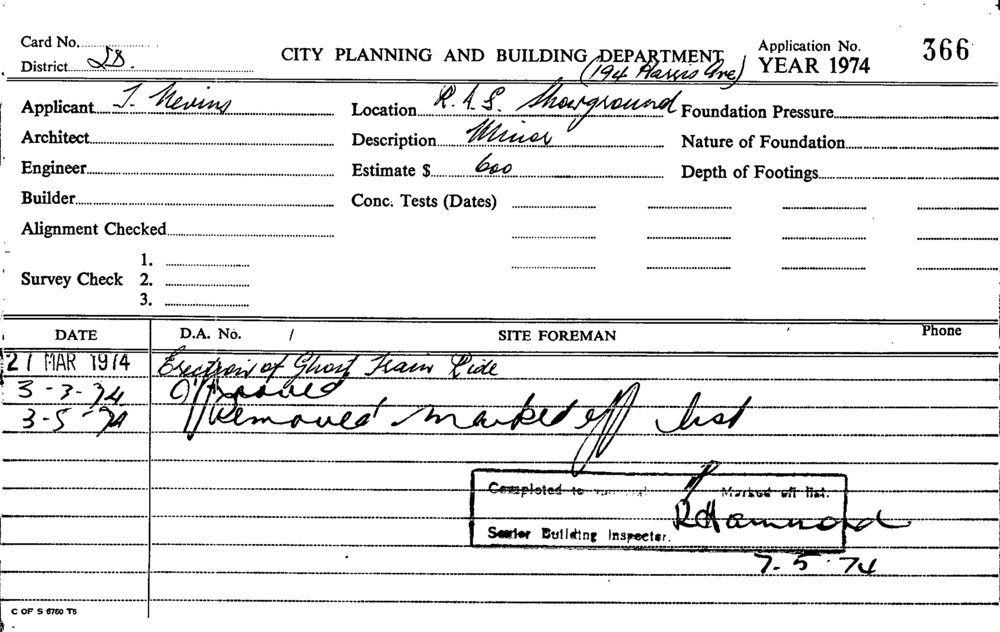 Card No.
District 2S.
CITY PLANNING AND BUILDING DEPARTMENT
(194 Harris Ave)
Application No. 366
YEAR 1974
Applicant J. Nevins
Location R.A.S. Showground
Foundation Pressure
Architect
Description Minor
Nature of Foundation
Engineer
Estimate $ 600
Depth of Footings
Builder
Conc. Tests (Dates)
Alignment Checked
Survey Check 1.
2.
3.
DATE D.A. No. / SITE FOREMAN Phone
21 MAR 1974 Erection of Ghost Train Ride
3-3-74 Approved
3-5-74 Removed marked off list
Completed to Marked off list.
R Hammond
Senior Building Inspector.
7.5.74
C OF S 6760 T5